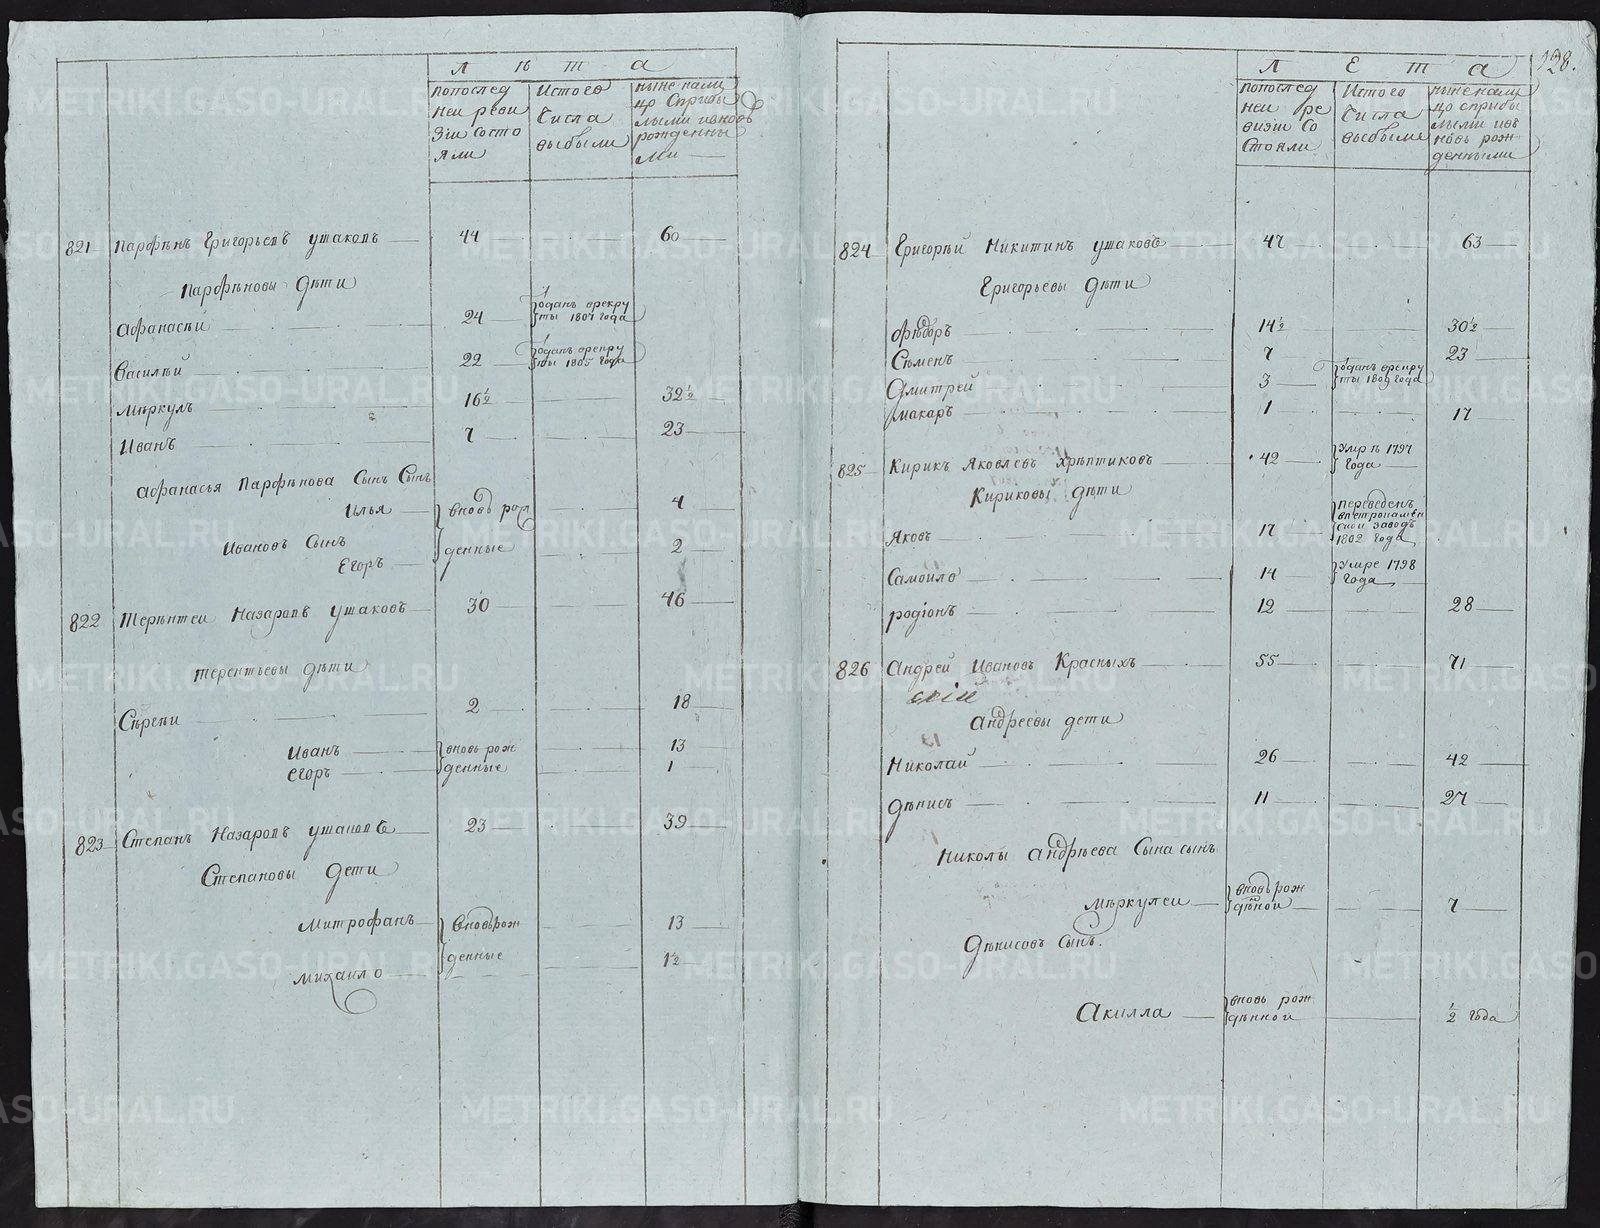 лѣта
попослед
неи реви
зіи состо
яли
Истого
Числа
выбыли
ныне нали
цо Сприбы
лыми ивновь
рожденны
ми
821 Парфѣнъ Григорьевъ ушаковъ 44 60
Парфѣновы дѣти
Афанасѣи 24 1807 года
Василѣи 22 1805 года
Мѣркулъ 16½ 32½
Иванъ 7 23
Афанасья Парфѣнова Сынъ Сынъ
Илья вновь рож 4
Ивановъ Сынъ денные 2
Егоръ
822 Терѣнтеи Назаровъ ушаковъ 30 46
терентьевы дѣти
Сѣрепи 2 18
Иванъ вновь рож 13
Егоръ денные 1
823 Степанъ Назаровъ ушаковъ 23 39
Степановы дети
Митрофанъ вновьрож 13
денные
михаило 1½
128.
лета
попослед
неи ре
визіи Со
Стояли
Истого
Числа
выбыли
ныне нали
цо сприбы
лыми ивъ
новь рож
денными
824 Григорѣи Никитинъ ушаковъ 47 63
Григорьевы дѣти
Фѣдоръ 14½ 30½
Сѣменъ 7 23
Дмитрей 3 отданъ врекру
ты 1809 года
макаръ 1 17
825 Кирикъ Яковлевъ хрѣптиковъ 42 умрѣ 1797
года
Кириковы дѣти
Яковъ 17 переведенъ
впетрокамен
скои заводъ
1802 года
Самоило 14 умре 1798
года
родіонъ 12 28
826 Андрей Ивановъ Красныхъ 55 71
Андреевы дети
Николай 26 42
дѣнисъ 11 27
Николы андрѣева Сына сынъ
мѣркулеи вновь рож
дѣнои 7
дѣнисовъ Сынъ.
Акилла вновь рож
дѣннои ½ года
METRIKI.GASO-URAL.RU